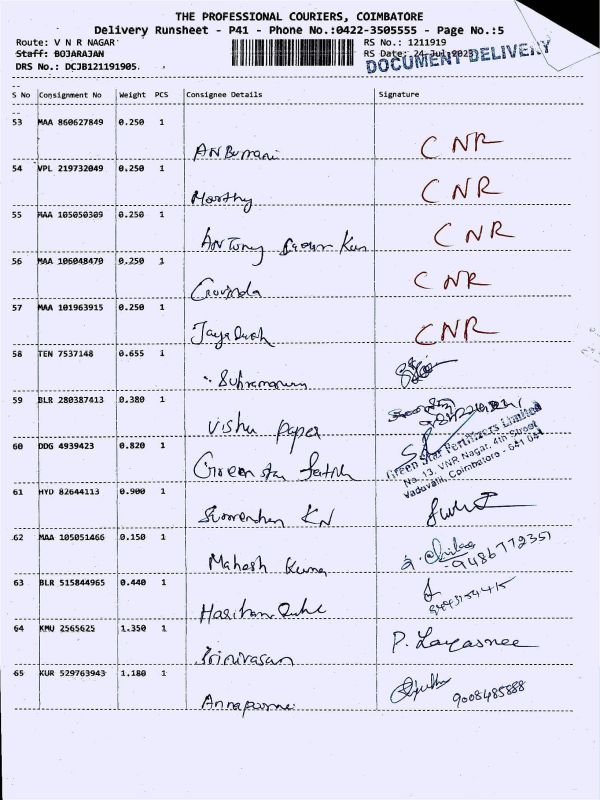 THE PROFESSIONAL COURIERS, COIMBATORE
Delivery Runsheet - P41 - Phone No.:0422-3505555 - Page No.:5
Route: V N R NAGAR RS No.: 1211919
Staff: BOJARAJAN RS Date: 24-Jul-2023
DOCUMENT DELIVERY
DRS No.: DCJB121191905.
S No Consignment No Weight PCS Consignee Details Signature
53 MAA 860627849 0.250 1
CNR
54 VPL 219732049 0.250 1
Moorthy CNR
55 MAA 105050309 0.250 1
Antony CNR
56 MAA 106048470 0.250 1
Govinda CNR
57 MAA 101963915 0.250 1
CNR
58 TEN 7537148 0.655 1
59 BLR 280387413 0.380 1
Vishu Paper
60 DDG 4939423 0.820 1
Green Star
Green Star Fertilizers Limited
No. 13, VNR Nagar, 4th Street
Vadavalli, Coimbatore - 641 041
61 HYD 82644113 0.900 1
KN
62 MAA 105051466 0.150 1
Mahesh Kumar 9486772351
63 BLR 515844965 0.440 1
64 KMU 2565625 1.350 1
Srinivasan P.
65 KUR 529763943 1.180 1
Annapurna 9008485888